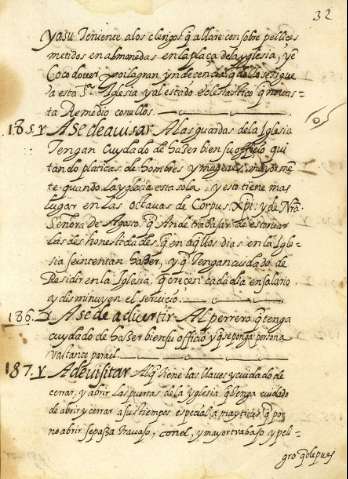 32
yasu Teniente alos clerigos q allare con sobre pellizes
metidos en almonedas en la plaça dela yglesia, ye
Coco dover por la gran yndecencia q dello se sigue
a esta Sta Iglesia y al estado eclesiastico q no en
ta Remedio con ellos.
185. Y A Se de avisar A las guardas de la Iglesia
Tengan Cuydado de hazer bien su officio qui
tando platicas de hombres y mugeres, mayormē
te quando la yglesia esta sola, y esto tiene mas
lugar en las octavas de Corpus Xpi. y de Nra.
Señora de Agosto. q An de trabajar de estorvar
las deshonestidades q en aqllos dias en la Igle
sia se intentan hazer, y q tengan cuidado de
Residir en la Iglesia, q crecen cada dia en salario
y disminuyen el servicio
186. Y A Se de advertir Al perrero q tenga
cuydado de hazer bien su officio y q se ponga persona
vastante para el
187. Y A de visitar Al q tiene las llaves y cuidado de
cerrar, y abrir las puertas de la yglesia q tenga cuidado
de abrir y cerrar a sus tiempos especial a maytines q por
no abrir se passa travajo, con el, y mayor travajo y peli-
gro q despues